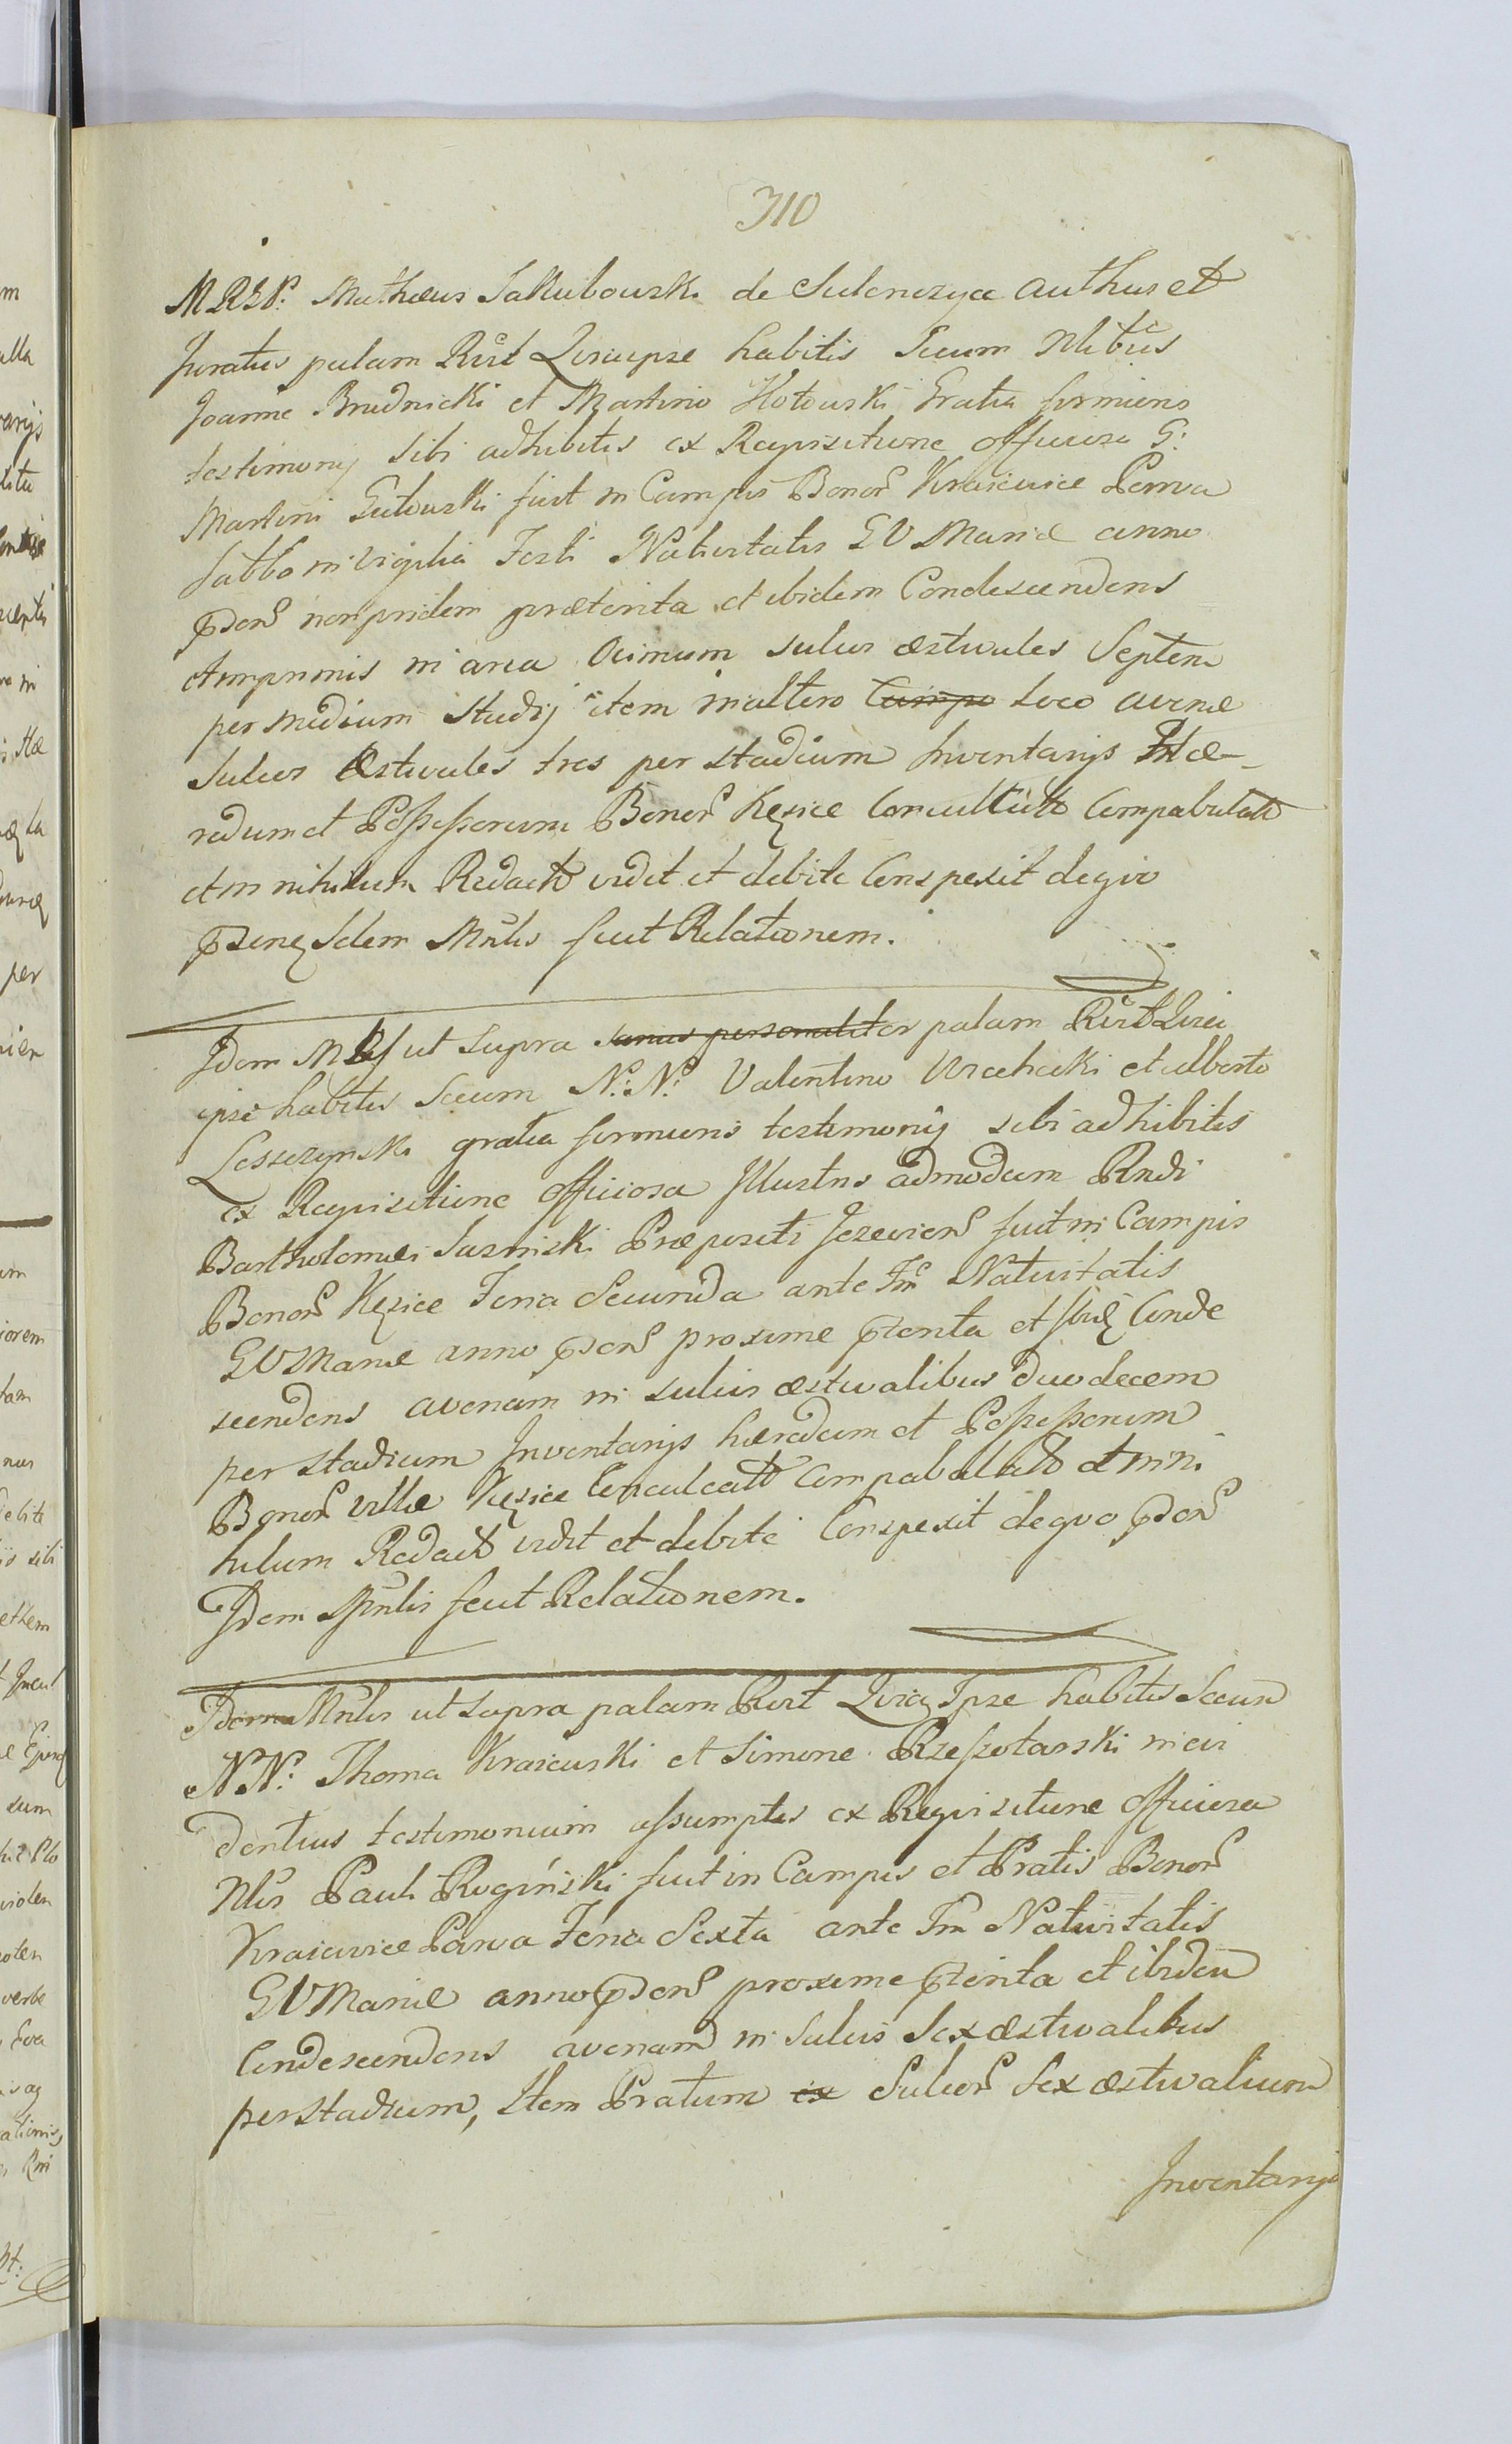 310
M R G N: Mathæus Jakubowski de Sulenczyce authus et
Juratus palam Rert Quia ipse habitis Secum Nlibus
Joanne Brudnicki et Martino Kołowski Gratia firmioris
testimonij sibi adhibitis ex Requisitione officiosa G:
Martini Gutowski fuit in Campis Bonor Kraiewice Parva
Sabbo in vigilia Festi Nativitatis BV Mariæ anno
pnden non pridem præterita et ibidem Condescendens
et inprimis in area Ocimum sulcos æstivales Septem
per medium Studij item in altero Campo loco avenæ
Sulcos Æstivales tres per stadium Inventarijs Hæ-
redum et Possessorum Bonor Kęsice Conculcat Compabulat
et in nihilum Redact vidit et debite Conspexit de quo
Idem Mnlis fecit Relationem.
Idem M ut supra sanus personaliter palam Rert Quia
ipse habitis Secum N: N: Valentino et Alberto
Leszczynski gratia firmioris testimonij sibi adhibitis
ex Requisitione officiosa Illustris admodum Rndi
Bartholomæi Præpositi Jezeviens fuit in Campis
Bonor Kęsice Feria Secunda ante Fm Nativitatis
BVMariæ anno proxime pterita et Ibid Conde
scendens avenam in sulcis æstivalibus duodecem
per stadium Inventarijs hæredum et Possessorum
Bonor villæ Kęsice Conculcatt Compabulatt et in ni-
hilum Redact vidit et debite Conspexit de quo
Idem Mnlis fecit Relationem.
Idem Mnlis ut supra palam Rert Quia Ipse habitis Secum
N N: Thoma Kraiewski et Simone Rzeszotarski in evi
dentius testimonium assumptis ex Requisitione officiosa
Nlis Pauli Rogiński fuit in Campis et Pratis Bonor
Kraiewice Parva Feria Sexta ante Fm Nativitatis
BVMariæ anno proxime pterita et ibidem
Condescendens avenam in Sulcis Sex æstivalibus
per stadium, Item Pratum ex Sulcor Sex æstivalium
Inventarijs